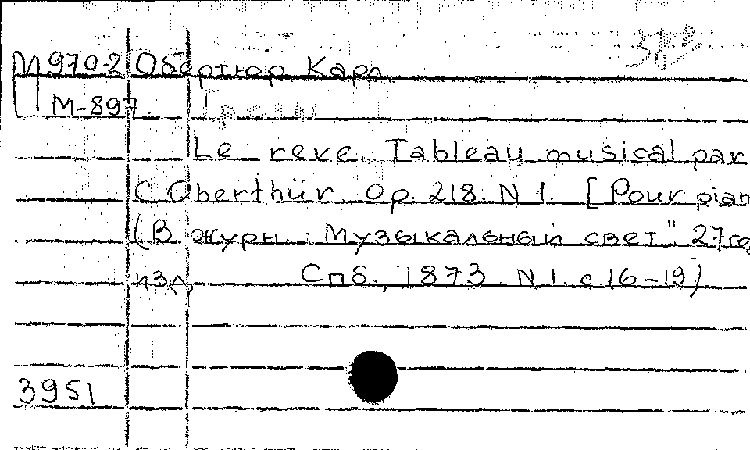 М 970-2 Обертюр Карл
М-897
Le reve. Tableau musical par
C. Oberthür. Op. 218. N 1. [Pour pian
(В журн. : Музыкальный свет" 27 го
изд. Спб., 1873. N 1. с 16-19)
3951